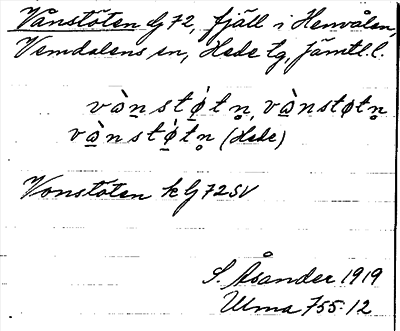 Vånstöten dj 72, fjäll i Henvålen,
Vemdalens sn, Hede tg, Jämtl. l.
vànstø̀tn̥, vànstøtn̥
vànstø̀tn̥ (Hede)
Vonstöten k G 72 SV
S. Åsander 1919
Ulma 755:12